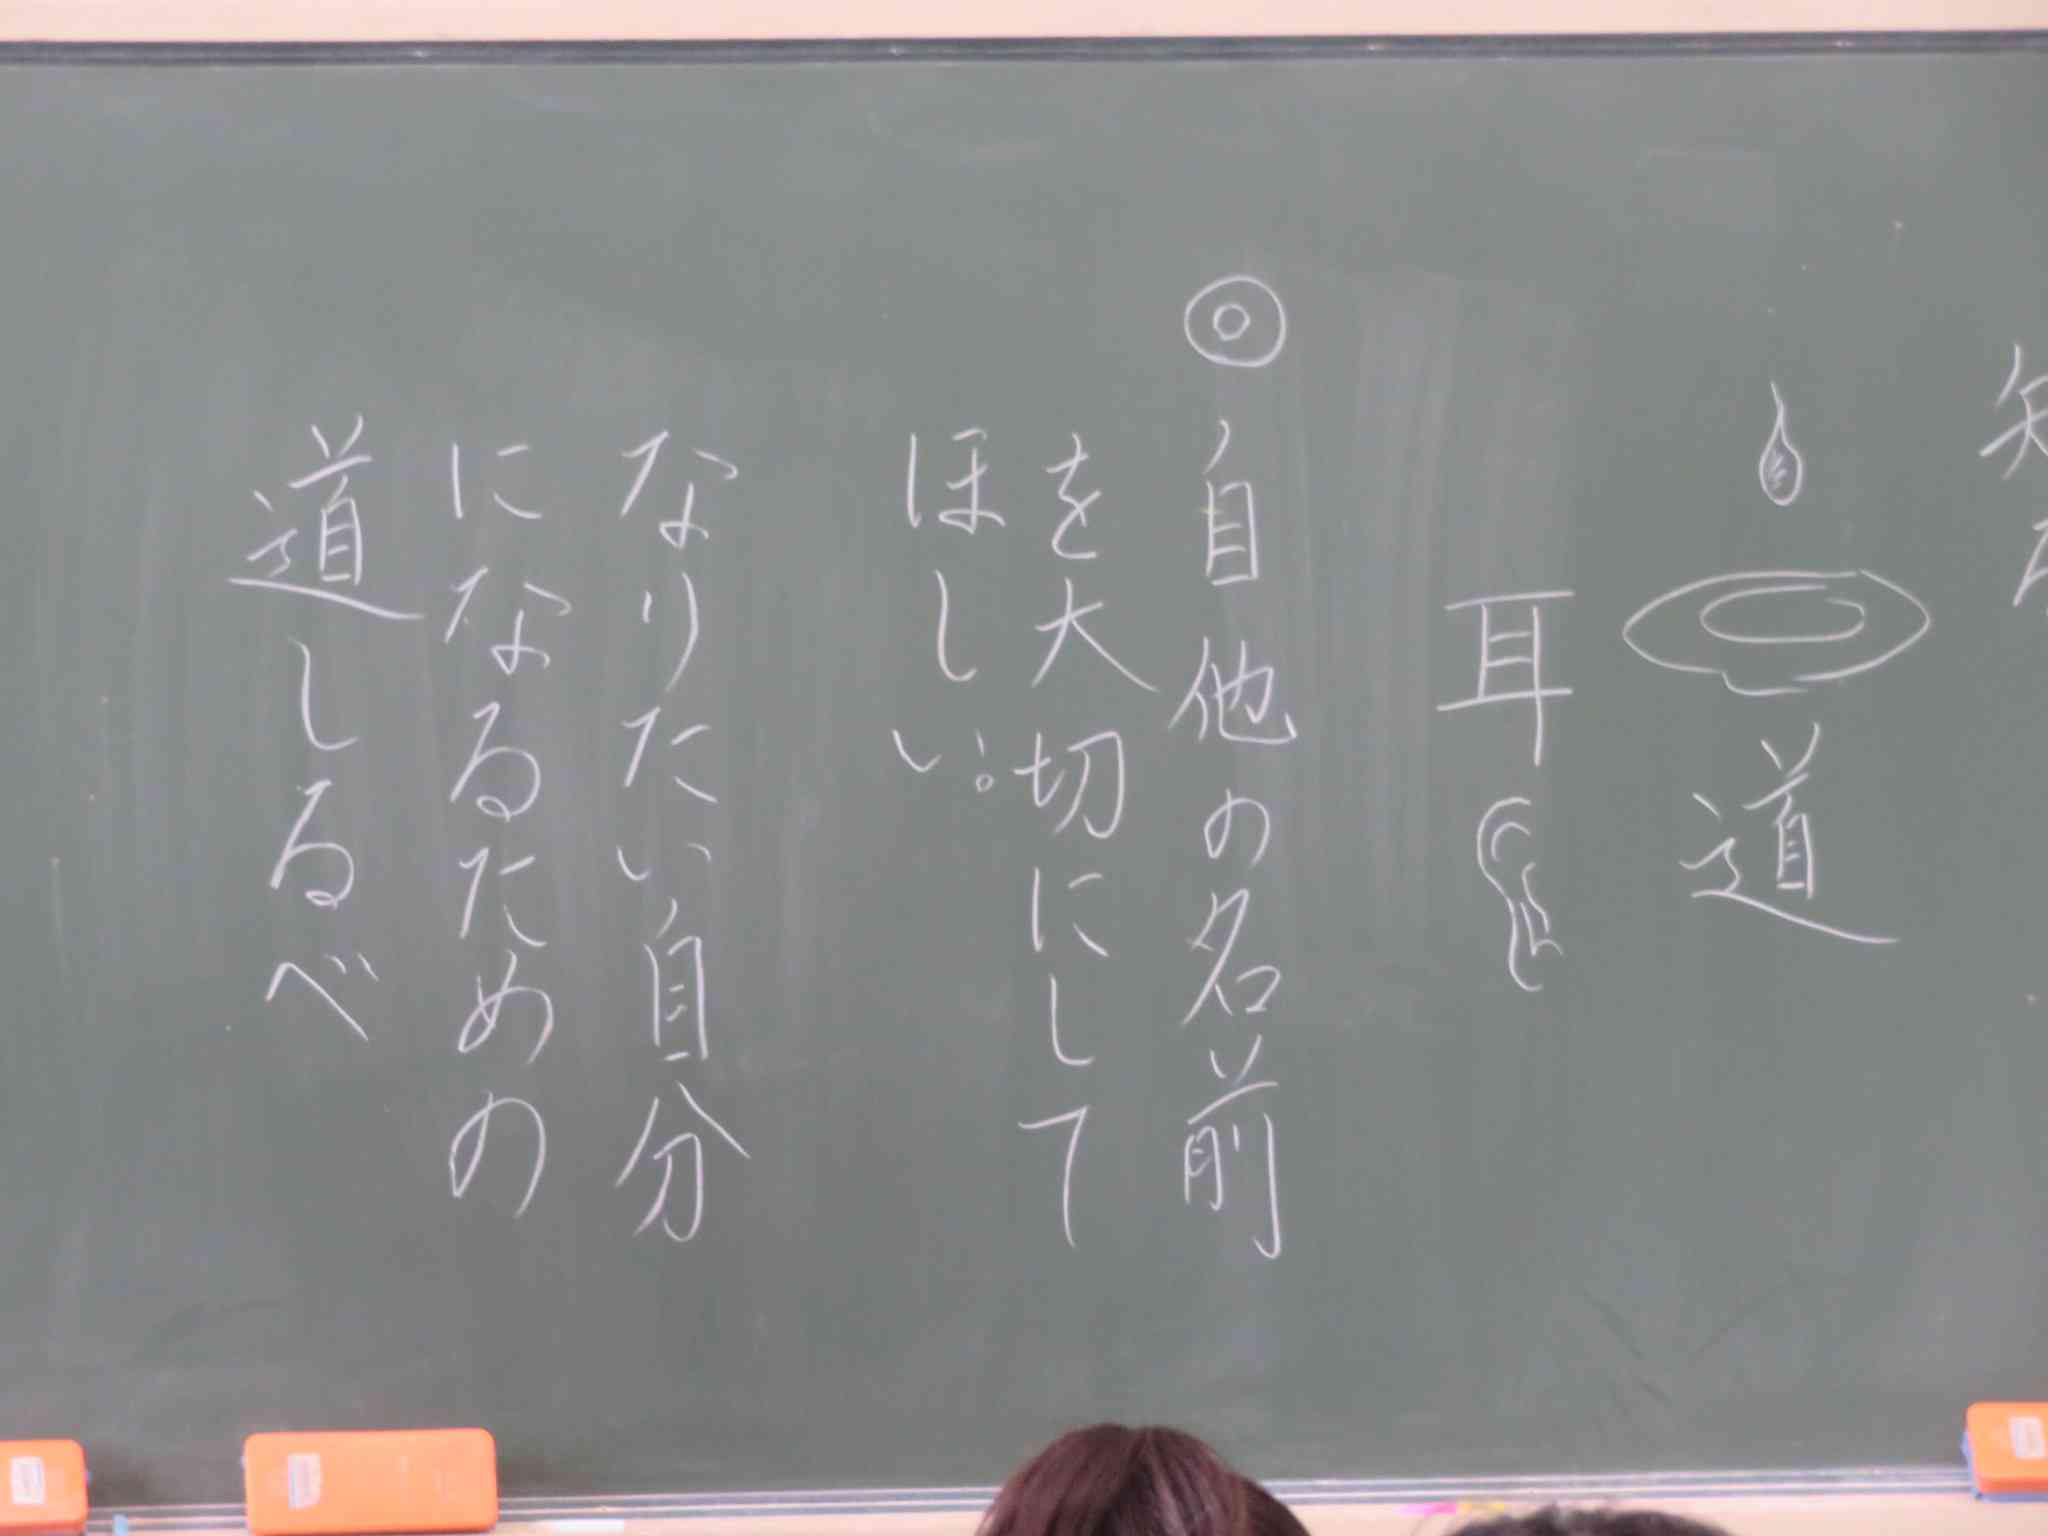 道
耳
◎自他の名前
を大切にして
ほしい。
なりたい自分
になるための
道しるべ